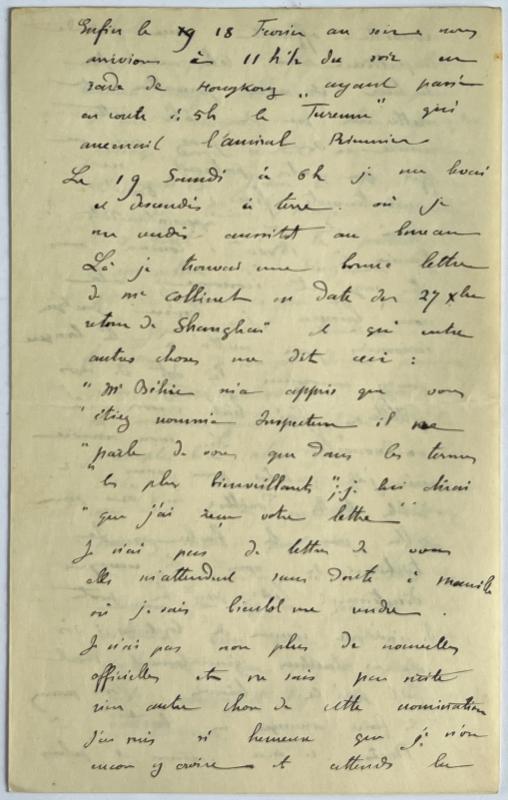 Enfin le 18 Fevrier au soir nous
arrivions à 11 h ½ du soir en
rade de Hongkong "ayant passé
en route à 5h le "Turenne" qui
amenait l'amiral Rieunier
Le 19 Samdi à 6h je me levai
et descendis à terre. où je
me rendis aussitôt au bureau
Là je trouvai une bonne lettre
de Mr Collinet en date du 27 Xbre
retour de Shanghaï et qui entre
autres choses me dit ceci :
" Mr Béhic m'a appris que vous
" étiez nommé Inspecteur il ne
" parle de vous que dans les termes
" les plus bienveillants "; je lui dirai
" que j'ai reçu votre lettre "
Je n'ai pas de lettre de vous
elles m'attendent sans doute à Manille
où je vais bientôt me rendre.
Je n'ai pas non plus de nouvelles
officielles et ne sais par suite
rien autre chose de cette nomination
J'en suis si heureux que je n'ose
encore y croire et attends la